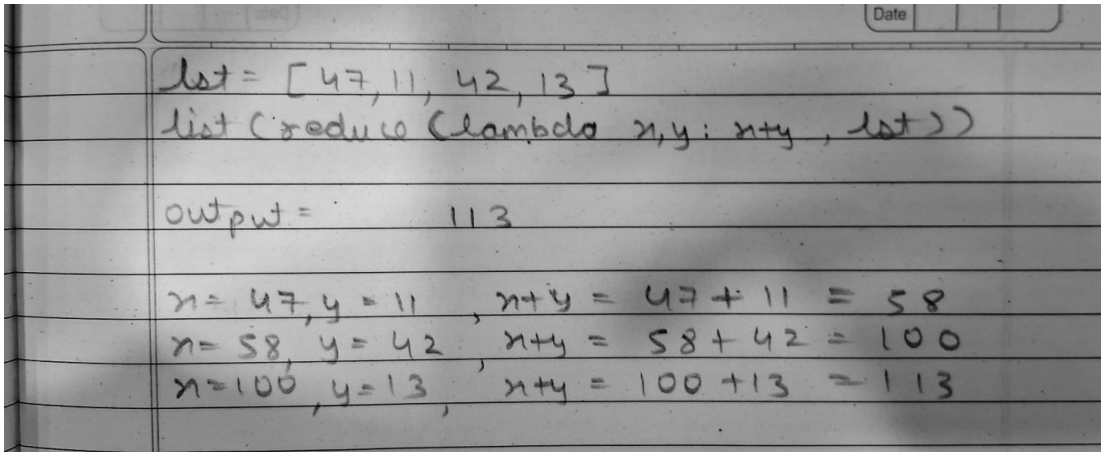 Date
lst = [47, 11, 42, 13]
list (reduce (lambda x, y : x+y , lst))
output = 113
x = 47, y = 11 , x+y = 47 + 11 = 58
x = 58, y = 42 , x+y = 58 + 42 = 100
x = 100, y = 13 , x+y = 100 + 13 = 113